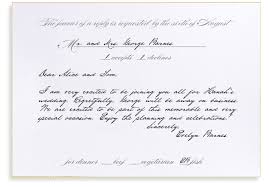 The favour of a reply is requested by the sixth of August
Mr. and Mrs. George Barnes
1 accepts 1 declines
Dear Alice and Tom,
I am very excited to be joining you all for Hannah's
wedding. Regretfully, George will be away on business.
We are excited to be part of this memorable and very
special occasion. Enjoy the planning and celebrations!
Sincerely,
Evelyn Barnes
for dinner beef vegetarian fish